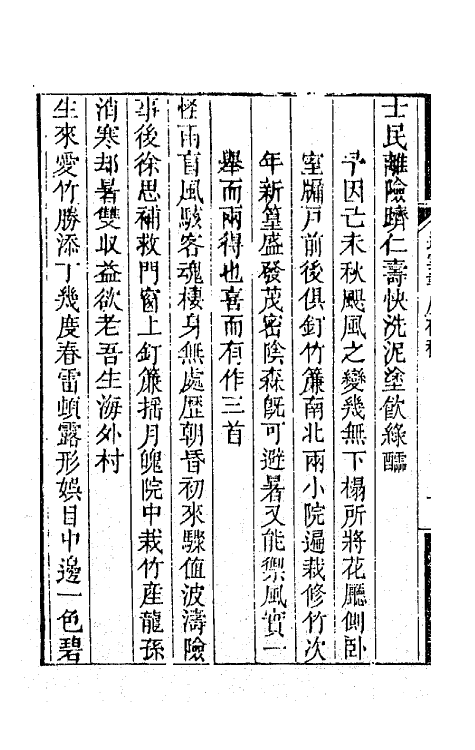 士民離險躋仁壽快洗泥塗飲綠醽
予因己未秋颶風之變幾無下榻所將花廳側卧
室牖戸前後俱釘竹簾南北兩小院遍栽修竹次
年新篁盛發茂密陰森旣可避暑又能禦風實一
舉而兩得也喜而有作三首
怪雨盲風駭客魂棲身無處歴朝昏初來驟値波濤險
事後徐思補救門窗上釘簾揺月魄院中栽竹産龍孫
消寒却暑雙収益欲老吾生海外村
生來愛竹勝添丁幾度春雷頓露形娯目中邊一色碧